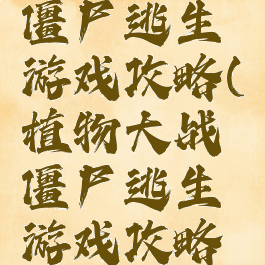 僵尸逃生
游戏攻略(
植物大战
僵尸逃生
游戏攻略